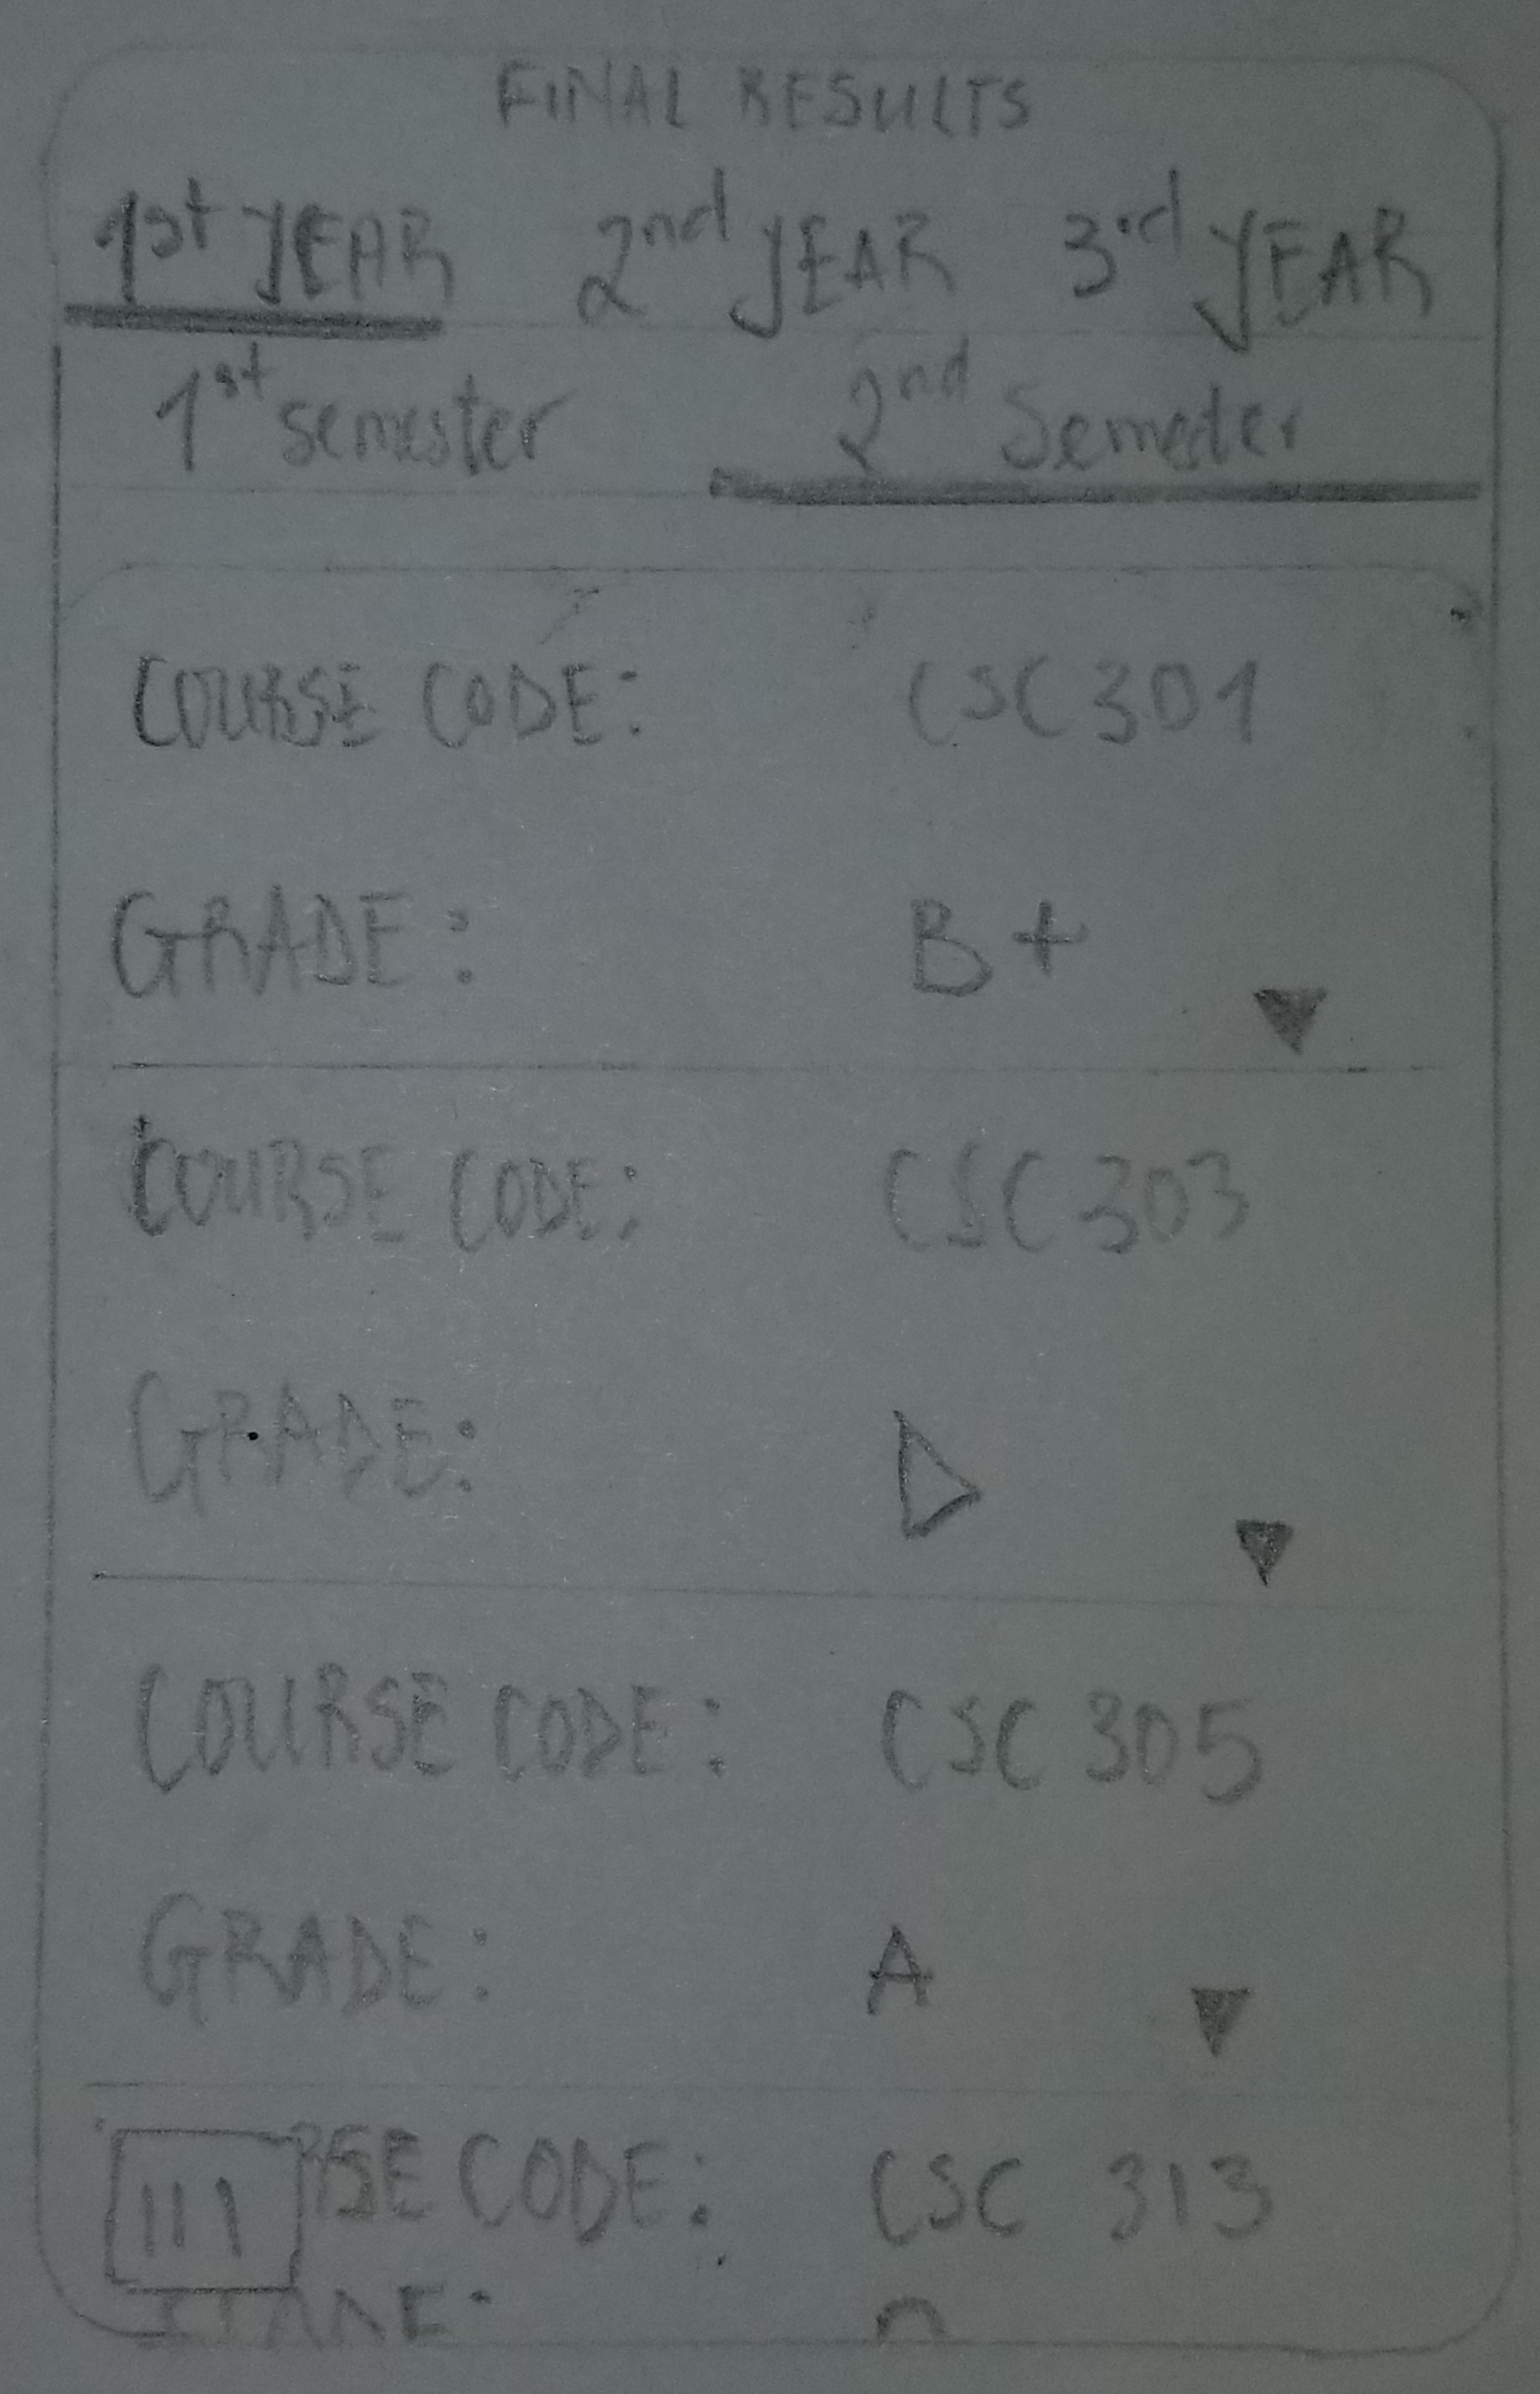 FINAL RESULTS
1st YEAR 2nd YEAR 3rd YEAR
1st semester 2nd Semester
COURSE CODE: CSC 301
GRADE: B+
COURSE CODE: CSC 303
GRADE: D
COURSE CODE: CSC 305
GRADE: A
RSE CODE: CSC 313